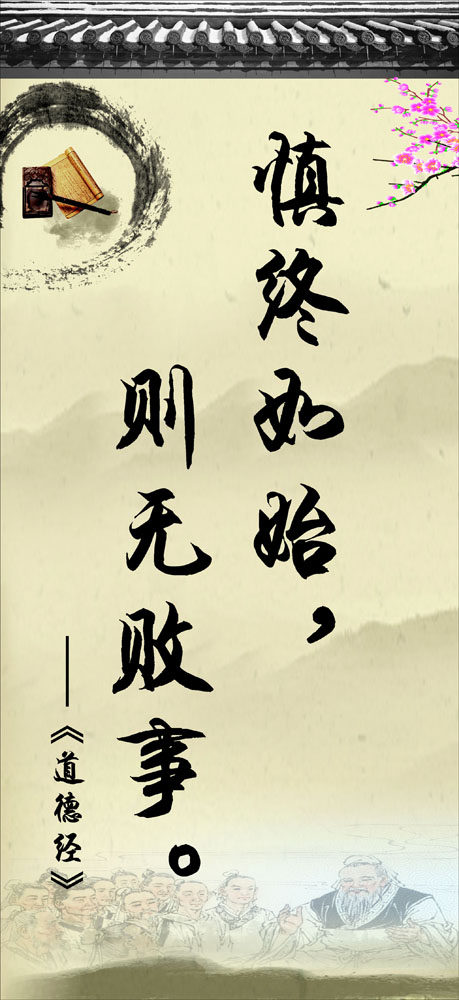 慎终如始，
则无败事。
——《道德经》